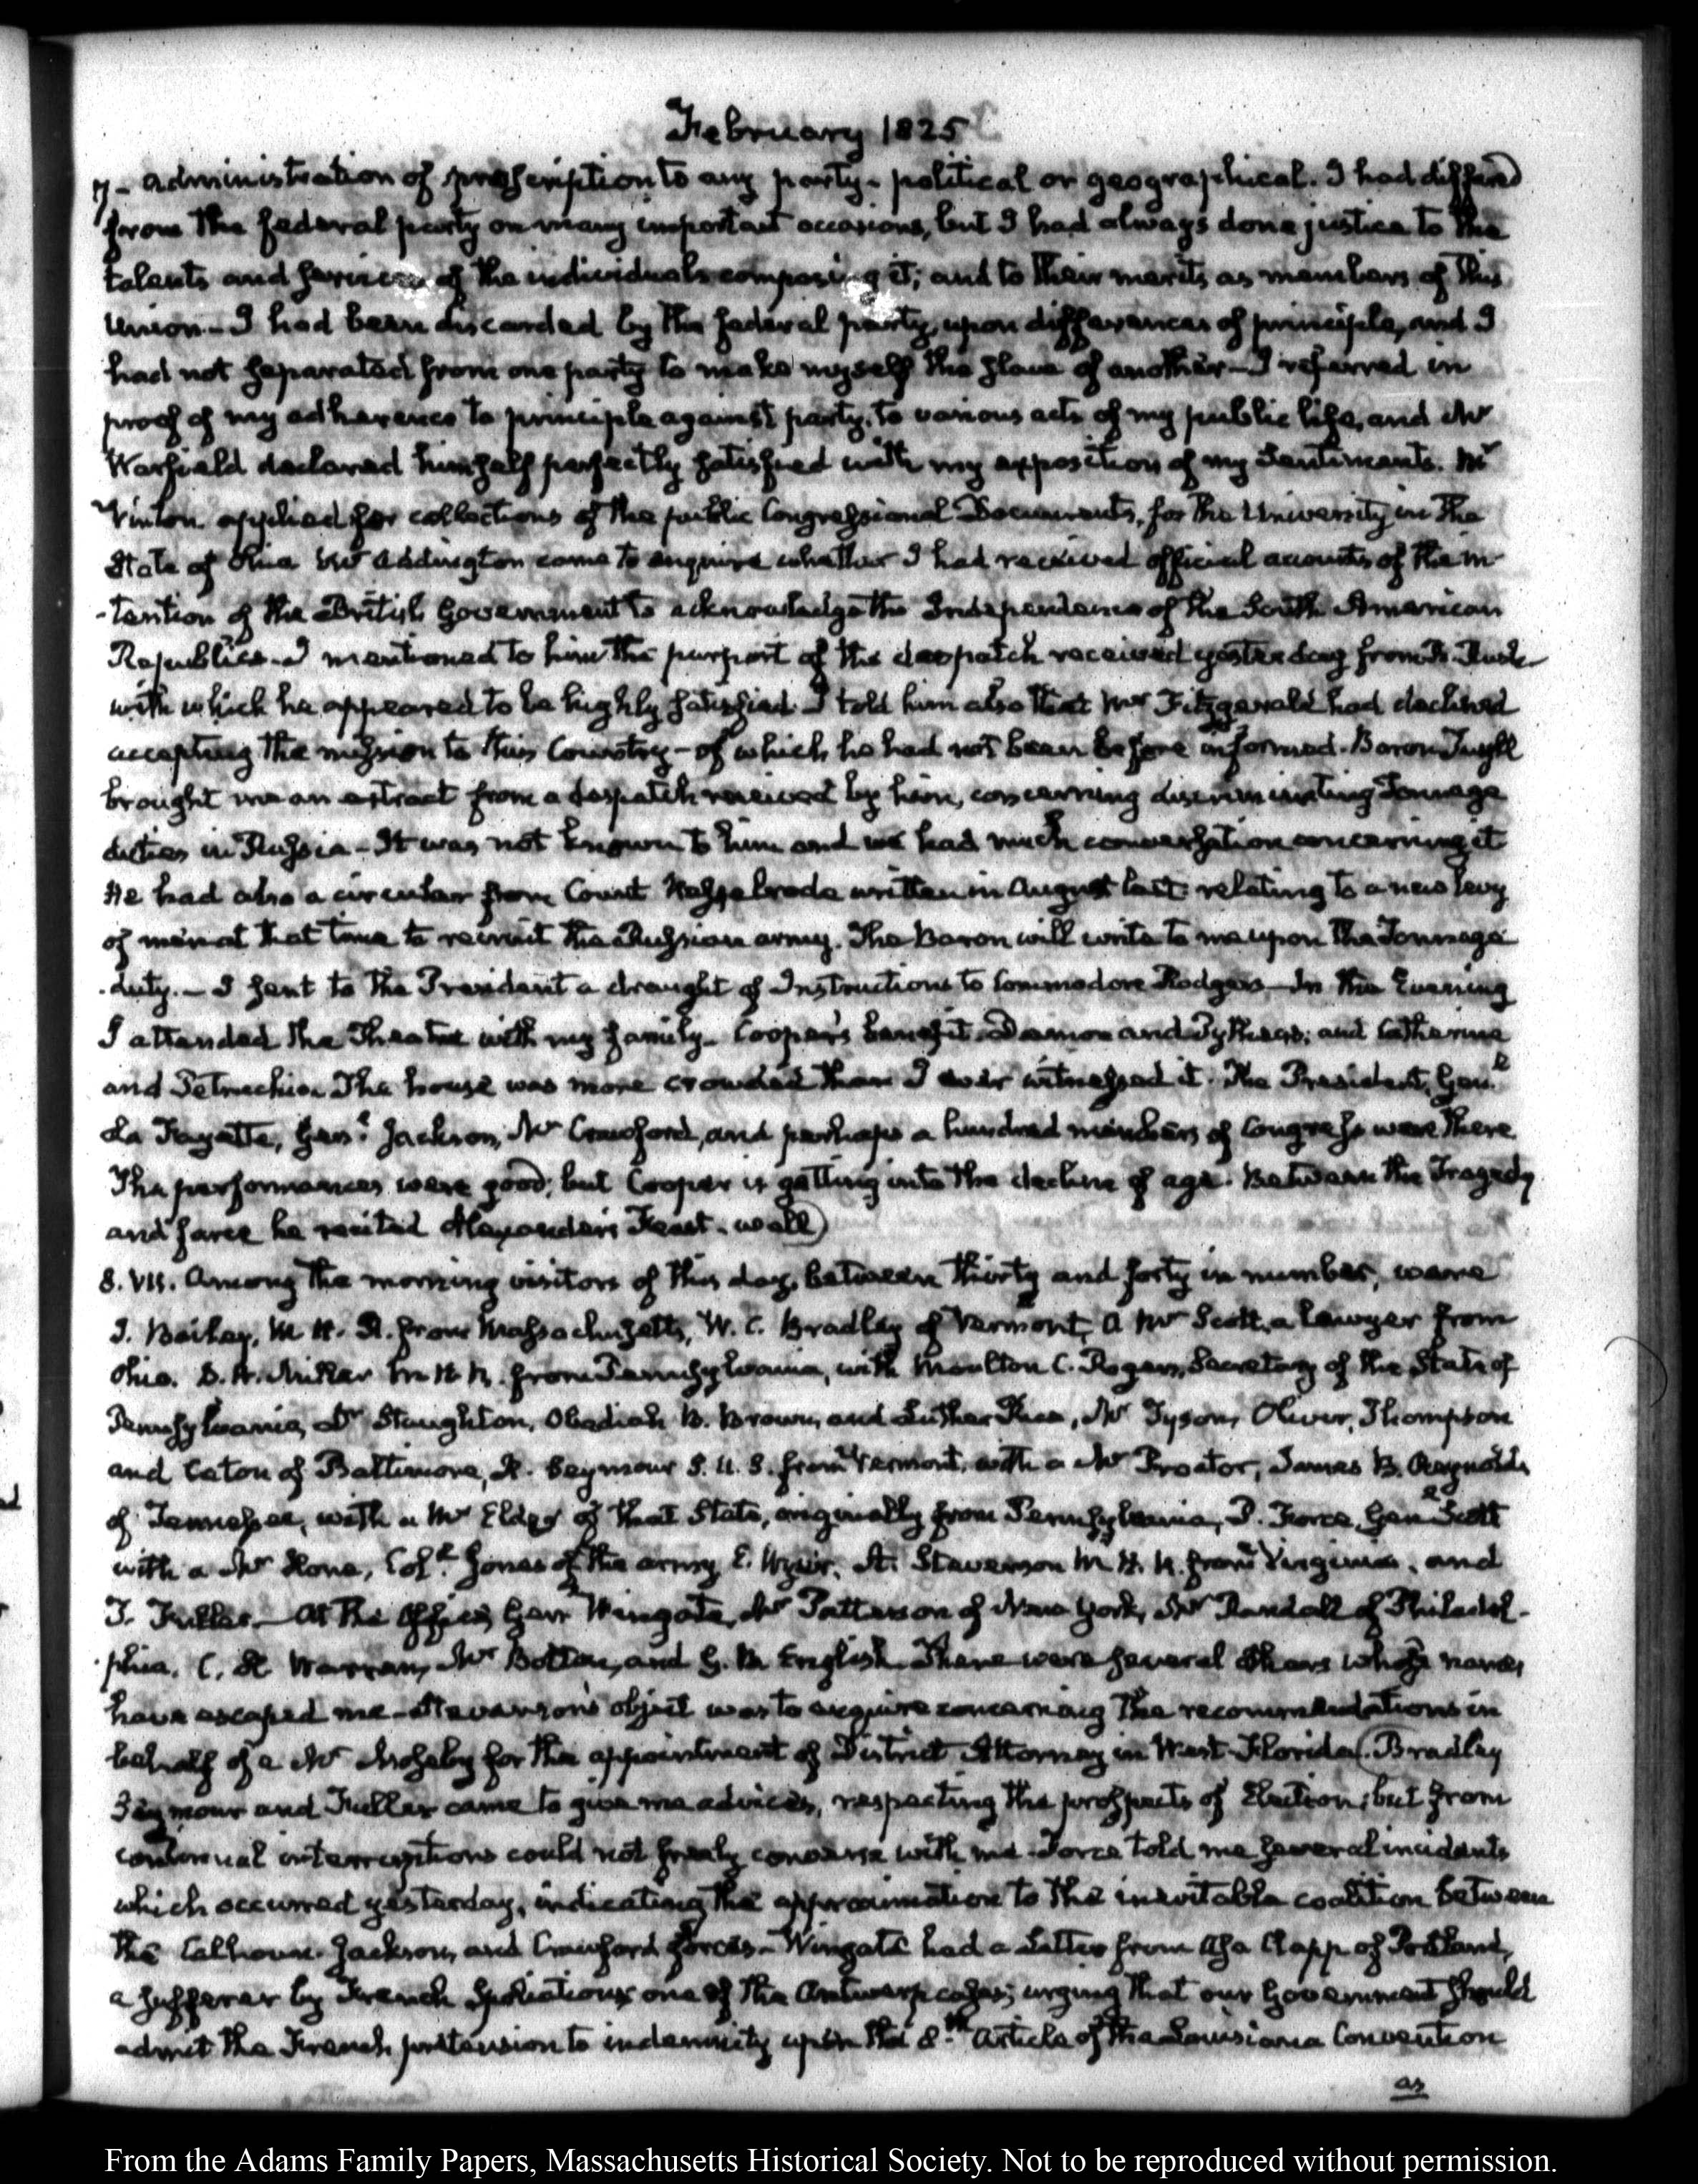 February 1825
7- administration of proscription to any party - political or geographical. I had differed
from the federal party on many important occasions, but I had always done justice to the
talents and services of the individuals composing it; and to their merits as members of this
Union - I had been discarded by the federal party, upon differences of principle, and I
had not separated from one party to make myself the slave of another - I referred in
proof of my adherence to principle against party, to various acts of my public life, and Mr
Warfield declared himself perfectly satisfied with my exposition of my Sentiments. Mr
Vinton applied for collections of the public Congressional Documents, for the University in the
State of Ohio Mr Addington came to enquire whether I had received official accounts of the in-
-tention of the British Government to acknowledge the Independence of the South American
Republics - I mentioned to him the purport of the despatch received yesterday from R. Rush
with which he appeared to be highly satisfied. I told him also that Mr Fitzgerald had declined
accepting the mission to this Country - of which he had not been before informed. Baron Tuyll
brought me an extract from a despatch received by him, concerning discriminating Tonnage
duties in Russia - It was not known to him and we had much conversation concerning it
He had also a circular from Count Nesselrode written in August last relating to a new levy
of men at that time to recruit the Russian army. The Baron will write to me upon the Tonnage
duty. - I sent to the President a draught of Instructions to Commodore Rodgers - In the Evening
I attended the Theatre with my family - Cooper's benefit. Damon and Pythias; and Catherine
and Petruchio. The house was more crowded than I ever witnessed it. The President, Genl
La Fayette, Genl Jackson, Mr Crawford, and perhaps a hundred members of Congress were there
The performances were good; but Cooper is getting into the decline of age. Between the Tragedy
and farce he recited Alexander's Feast. well)
8. VII. Among the morning visitors of this day, between thirty and forty in number, were
J. Bailey, M. H. R. from Massachusetts, W. C. Bradley of Vermont, a Mr Scott, a lawyer from
Ohio. D. H. Miller M H R. from Pennsylvania, with Moulton C. Rogers, Secretary of the State of
Pennsylvania, Dr Staughton, Obadiah B. Brown, and Luther Rice, Mr Tyson, Oliver, Thompson
and Eaton of Baltimore, H. Seymour S. U. S. from Vermont, with a Mr Proctor, James B. Reynolds
of Tennessee, with a Mr Elder of that State, originally from Pennsylvania, P. Force, Genl Scott
with a Mr Hone, Coll Jones of the army, E. Wyer, A. Stevenson M. H. R. from Virginia, and
T. Fuller - At the Office, Genl Wingate, Mr Patterson of New York, Mr Randall of Philadel-
phia, C. H Warren, Mr and G. B. English. There were several others whose names
have escaped me - Stevenson's object was to enquire concerning the recommendations in
behalf of a Mr for the appointment of District Attorney in West-Florida (Bradley
Seymour and Fuller came to give me advices, respecting the prospects of Election; but from
continual interruptions could not freely converse with me - Force told me several incidents
which occurred yesterday, indicating the approximation to the inevitable coalition between
the Calhoun Jackson, and Crawford forces - Wingate had a Letter from Asa Clapp of Portland,
a sufferer by French Spoliations, one of the Antwerp cases; urging that our Government should
admit the French pretension to indemnity upon the 8th Article of the Louisiana Convention
as
From the Adams Family Papers, Massachusetts Historical Society. Not to be reproduced without permission.